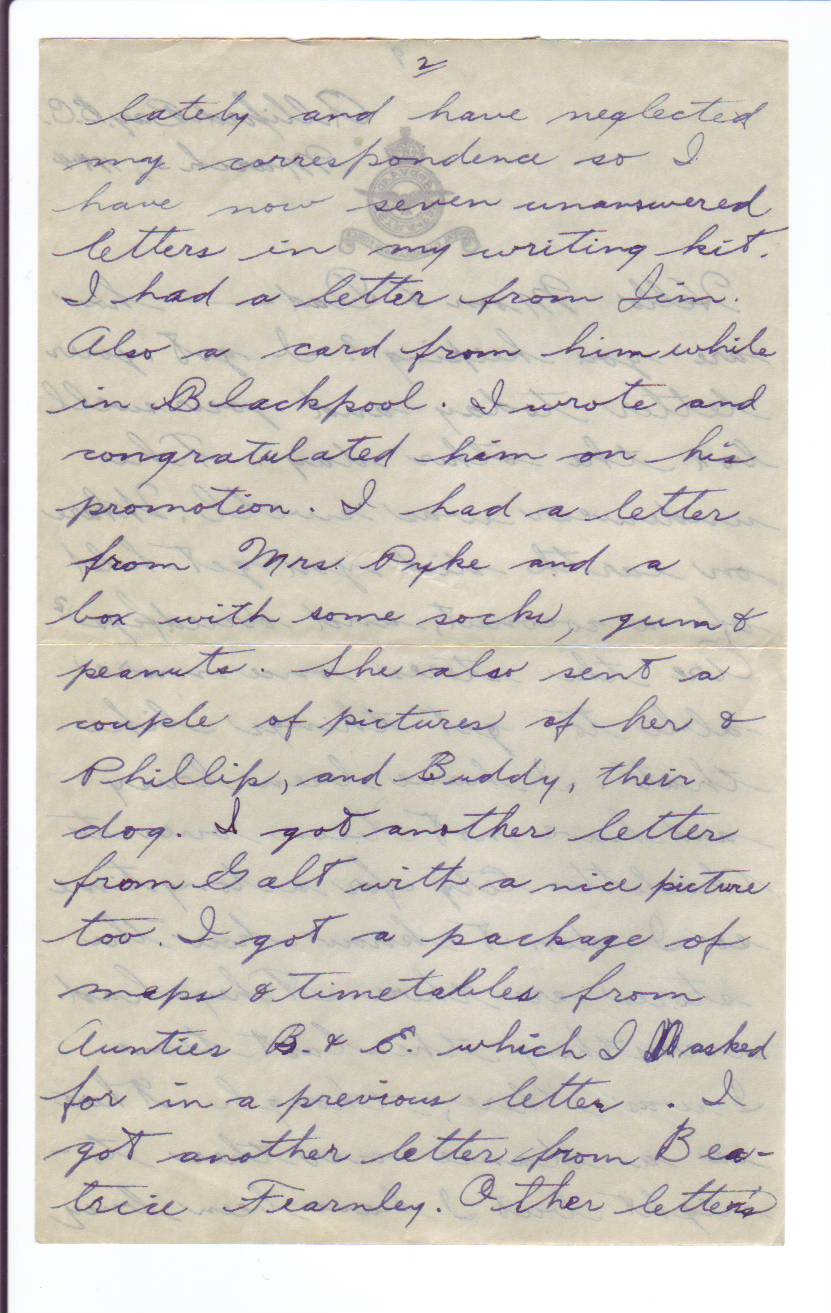 2
lately and have neglected
my correspondence so I
have now seven unanswered
letters in my writing kit.
I had a letter from Jim.
Also a card from him while
in Blackpool. I wrote and
congratulated him on his
promotion. I had a letter
from Mrs. Pyke and a
box with some socks, gum &
peanuts. She also sent a
couple of pictures of her &
Phillip, and Buddy, their
dog. I got another letter
from Galt with a nice picture
too. I got a package of
maps & timetables from
Aunties B. & E. which I asked
for in a previous letter. I
got another letter from Bea-
trice Fearnley. Other letters